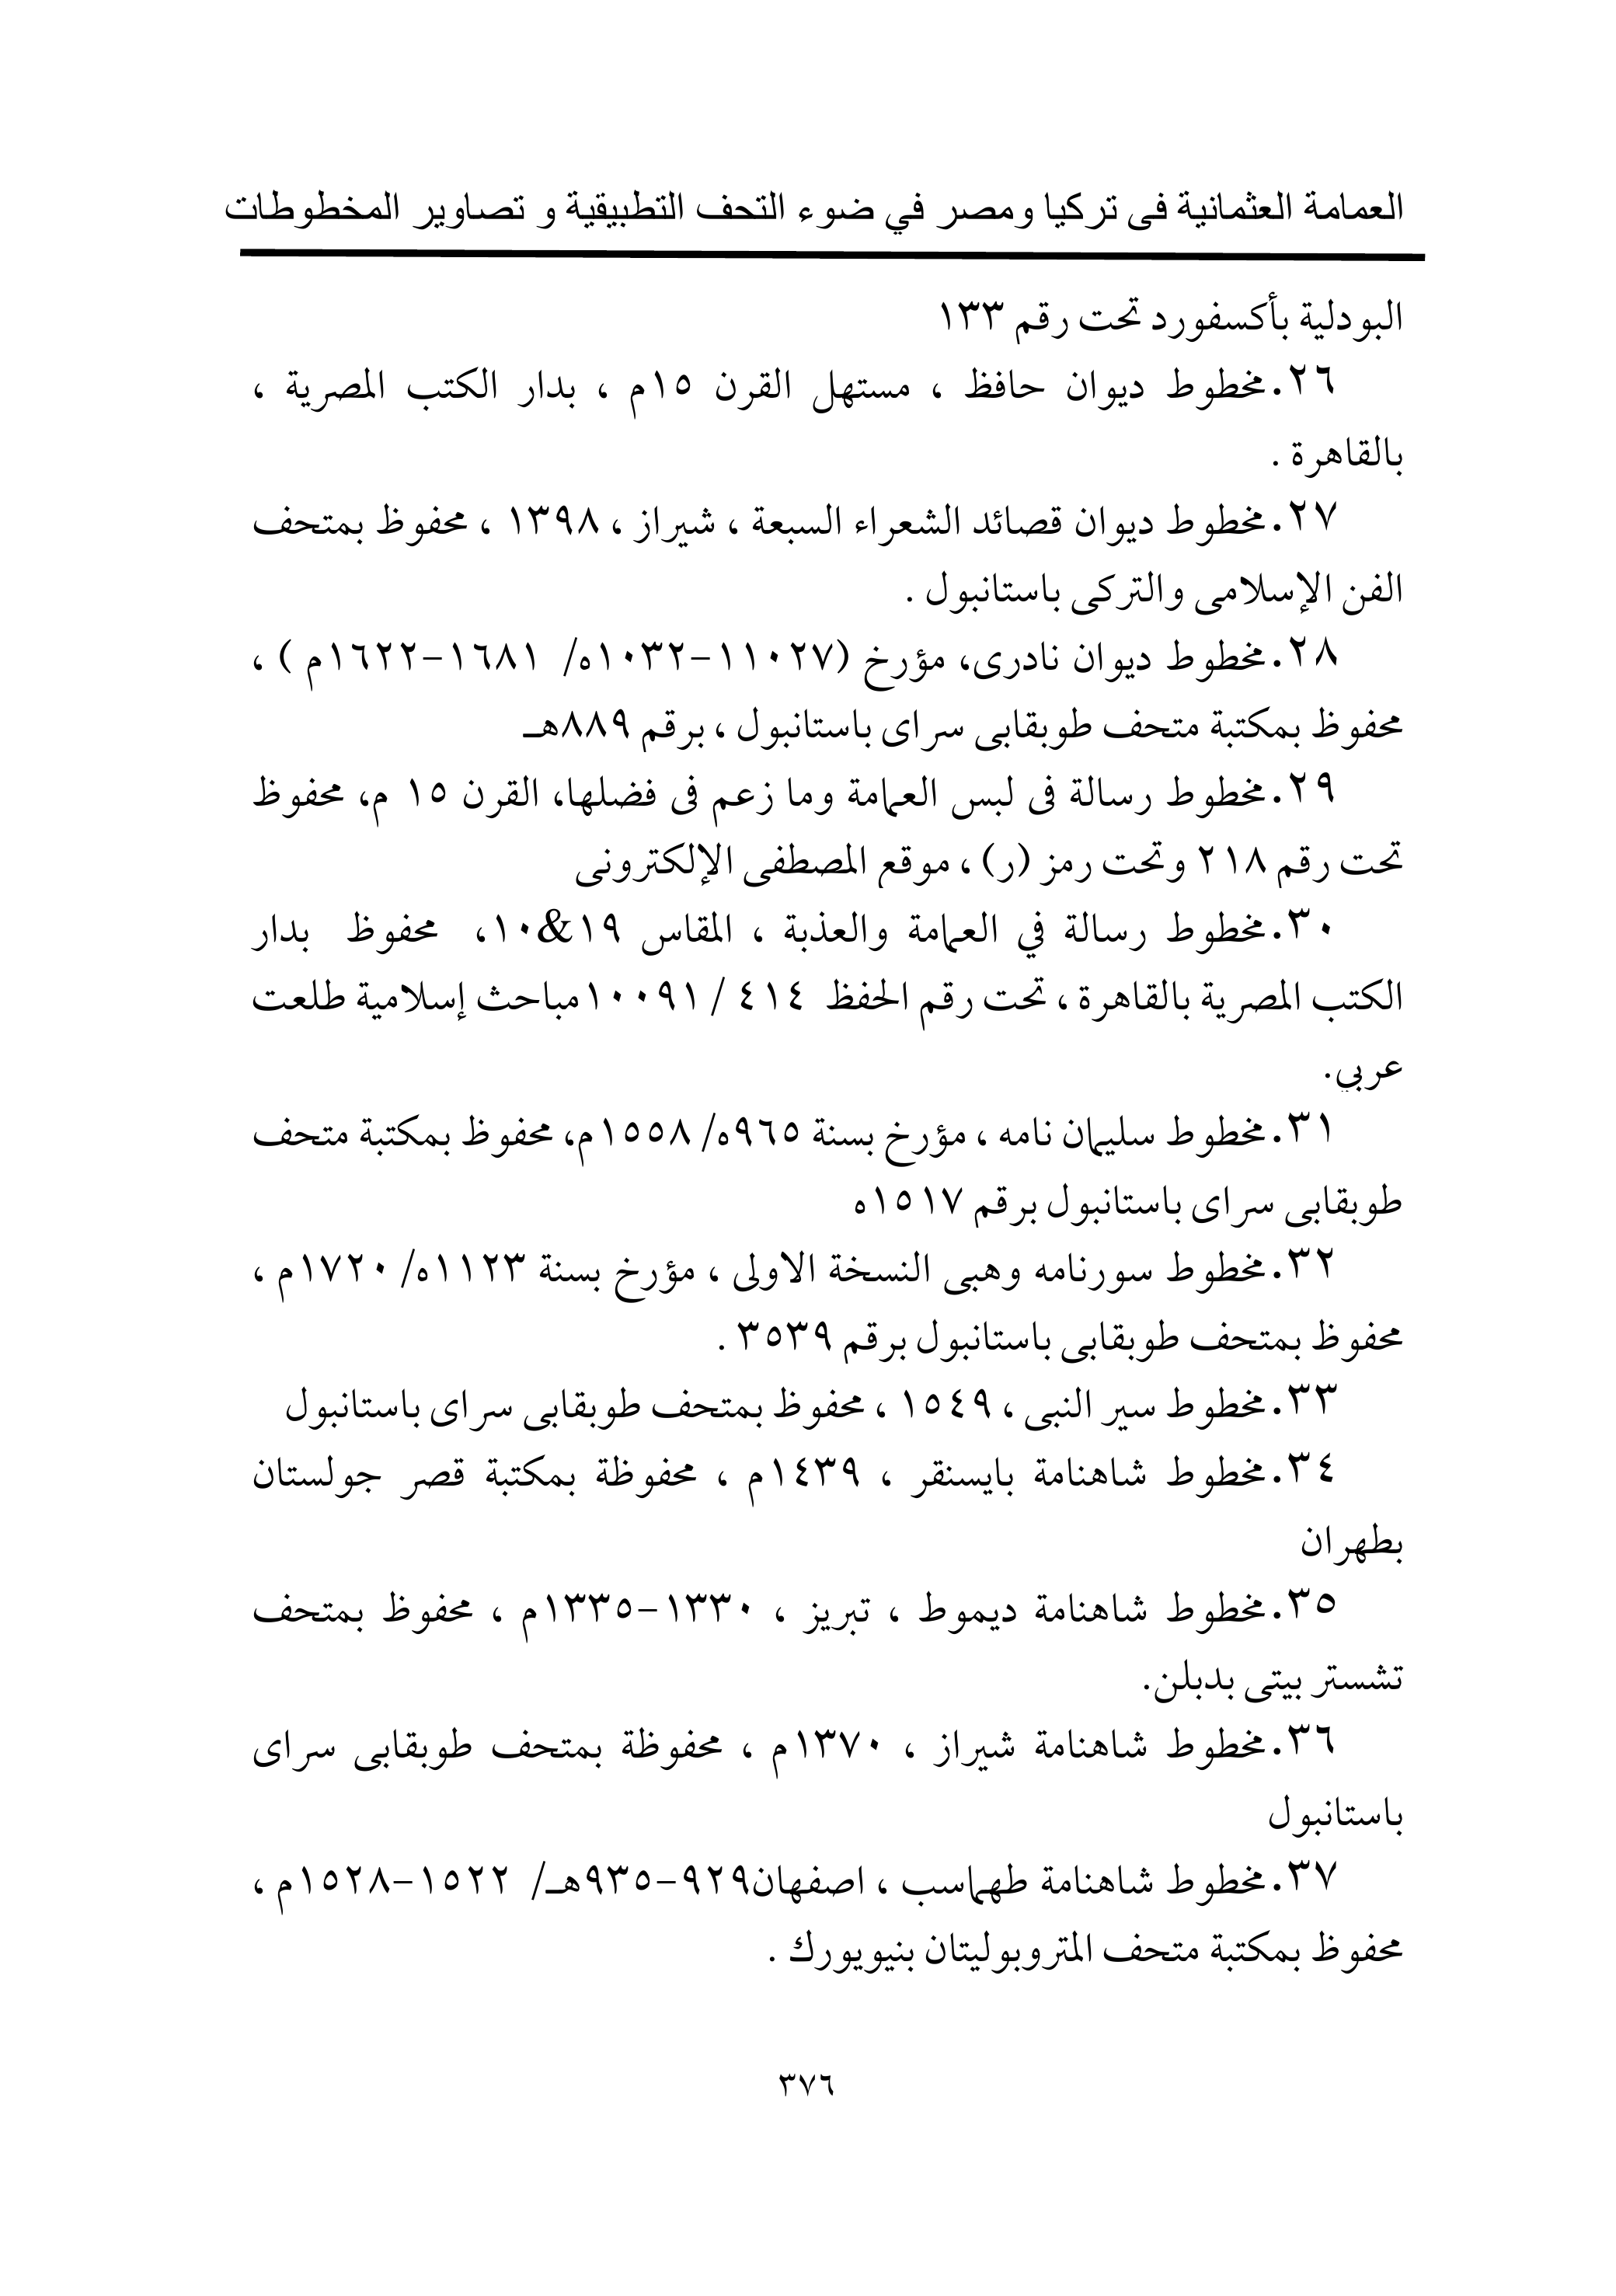 العمامة العثمانية فى تركيا ومصر في ضوء التحف التطبيقية و تصاوير المخطوطات
البودلية بأكسفورد تحت رقم ١٣٣
٢٦.مخطوط ديوان حافظ ، مستهل القرن ١٥م ، بدار الكتب المصرية ،
بالقاهرة .
٢٧.مخطوط ديوان قصائد الشعراء السبعة ، شيراز ، ١٣٩٨ ، محفوظ بمتحف
الفن الإسلامى والتركى باستانبول .
٢٨.مخطوط ديوان نادرى، مؤرخ (١١٠٢٧-١٠٣٢ه/ ١٦٨١-١٦٢٢م ) ،
محفوظ بمكتبة متحف طوبقابى سراى باستانبول ، برقم ٨٨٩هـ
٢٩.مخطوط رسالة فى لبس العمامة وما زعم فى فضلها، القرن ١٥ م، محفوظ
تحت رقم ٢١٨ وتحت رمز (ر) ، موقع المصطفى الإلكترونى
٣٠.مخطوط رسالة في العمامة والعذبة ، المقاس ١٩&١٠، محفوظ بدار
الكتب المصرية بالقاهرة ، تحت رقم الحفظ ٤١٤ / ١٠٠٩١مباحث إسلامية طلعت
عربي.
٣١.مخطوط سليمان نامه ، مؤرخ بسنة ٩٦٥ه/ ١٥٥٨م، محفوظ بمكتبة متحف
طوبقابى سراى باستانبول برقم ١٥١٧ه
٣٢.مخطوط سورنامه وهبى النسخة الاولى ، مؤرخ بسنة ١١٢٣ه/ ١٧٢٠م ،
محفوظ بمتحف طوبقابى باستانبول برقم ٣٥٣٩ .
٣٣.مخطوط سير النبى ، ١٥٤٩ ، محفوظ بمتحف طوبقابى سراى باستانبول
٣٤.مخطوط شاهنامة بايسنقر ، ١٤٣٩م ، محفوظة بمكتبة قصر جولستان
بطهران
٣٥.مخطوط شاهنامة ديموط ، تبريز ، ١٣٣٠-١٣٣٥م ، محفوظ بمتحف
تشستر بيتى بدبلن.
٣٦.مخطوط شاهنامة شيراز ، ١٣٧٠م ، محفوظة بمتحف طوبقابى سراى
باستانبول
٣٧.مخطوط شاهنامة طهماسب ، اصفهان٩٢٩-٩٣٥هـ/ ١٥٢٢-١٥٢٨م ،
محفوظ بمكتبة متحف المتروبوليتان بنيويورك .
٣٧٦